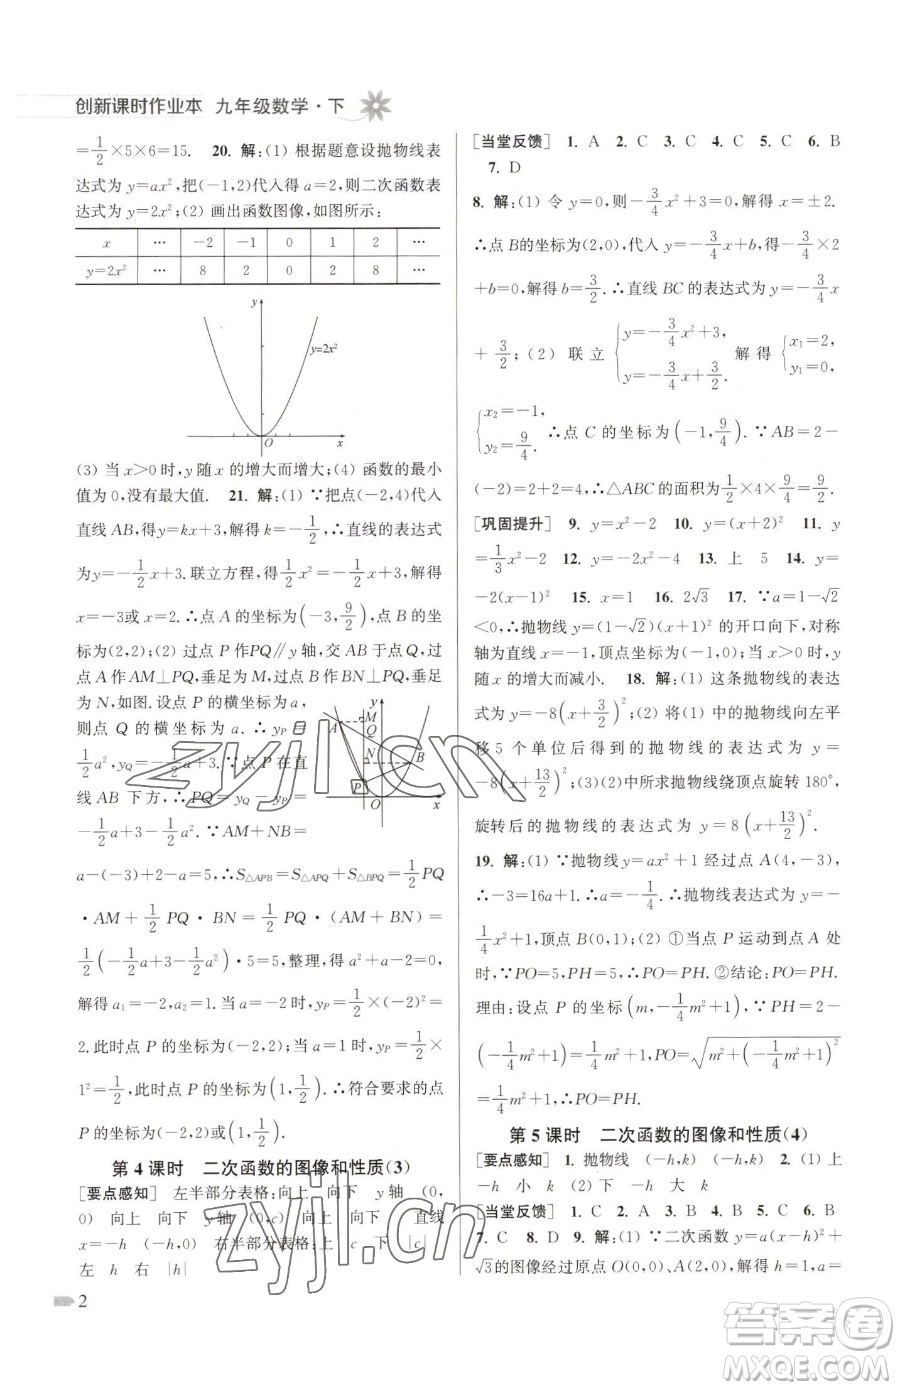 创新课时作业本 九年级数学·下
=1/2×5×6=15. 20. 解:(1) 根据题意设抛物线表
达式为 y=ax²,把(-1,2)代入得 a=2,则二次函数表
达式为 y=2x²;(2) 画出函数图像,如图所示:
x … -2 -1 0 1 2 …
y=2x² … 8 2 0 2 8 …
y
y=2x²
O x
(3) 当 x>0时,y 随 x 的增大而增大;(4) 函数的最小
值为 0,没有最大值. 21. 解:(1) ∵把点(-2,4)代入
直线 AB,得 y=kx+3,解得 k=-1/2,∴直线的表达式
为y=-1/2x+3.联立方程,得1/2x²=-1/2x+3,解得
x=-3或x=2.∴点 A 的坐标为(-3,9/2),点 B 的坐
标为(2,2);(2) 过点 P 作PQ∥y 轴,交 AB 于点 Q,过
点 A 作 AM⊥PQ,垂足为 M,过点 B 作 BN⊥PQ,垂足
为 N,如图.设点 P 的横坐标为 a,
则点 Q 的横坐标为 a.∴yP=
1/2a²,yQ=-1/2a+3.∵点 P 在直
线 AB 下方,∴PQ=yQ-yP=
-1/2a+3-1/2a².∵AM+NB=
y A M Q N B P O x
a-(-3)+2-a=5,∴S△APB=S△APQ+S△BPQ=1/2PQ
·AM+1/2PQ·BN=1/2PQ·(AM+BN)=
1/2(-1/2a+3-1/2a²)·5=5,整理,得 a²+a-2=0,
解得 a₁=-2,a₂=1.当 a=-2 时,yP=1/2×(-2)²=
2.此时点 P 的坐标为(-2,2);当 a=1 时,yP=1/2×
1²=1/2,此时点 P 的坐标为(1,1/2).∴符合要求的点
P的坐标为(-2,2)或(1,1/2).
第 4 课时 二次函数的图像和性质(3)
[要点感知] 左半部分表格:向上 向下 y 轴 (0,
0) 向上 向下 y轴 (0,c) 向上 向下 直线
x=-h (-h,0) 右半部分表格:上 c 下 |c|
左 h 右 |h|
[当堂反馈] 1. A 2. C 3. C 4. C 5. C 6. B
7. D
8. 解:(1) 令 y=0,则-3/4x²+3=0,解得 x=±2.
∴点 B的坐标为(2,0),代入 y=-3/4x+b,得-3/4×2
+b=0,解得 b=3/2.∴直线 BC 的表达式为 y=-3/4x
+3/2;(2) 联立{y=-3/4x²+3, y=-3/4x+3/2. 解得{x₁=2, y₁=0,
{x₂=-1, y₂=9/4. ∴点 C 的坐标为(-1,9/4).∵AB=2-
(-2)=2+2=4,∴△ABC的面积为1/2×4×9/4=9/2.
[巩固提升] 9. y=x²-2 10. y=(x+2)² 11. y
=1/3x²-2 12. y=-2x²-4 13. 上 5 14. y=
-2(x-1)² 15. x=1 16. 2√3 17. ∵a=1-√2
<0,∴抛物线 y=(1-√2)(x+1)² 的开口向下,对称
轴为直线 x=-1,顶点坐标为(-1,0);当 x>-1时,y
随 x 的增大而减小. 18. 解:(1) 这条抛物线的表达
式为 y=-8(x+3/2)²;(2) 将(1) 中的抛物线向左平
移 5 个单位后得到的抛物线的表达式为 y=
-8(x+13/2)²;(3)(2)中所求抛物线绕顶点旋转 180°,
旋转后的抛物线的表达式为 y=8(x+13/2)².
19. 解:(1) ∵抛物线 y=ax²+1 经过点 A(4,-3),
∴-3=16a+1,∴a=-1/4,∴抛物线表达式为 y=
-1/4x²+1,顶点 B(0,1);(2) ①当点 P 运动到点 A 处
时,∵PO=5,PH=5,∴PO=PH;②结论:PO=PH.
理由:设点 P 的坐标(m,-1/4m²+1),∵PH=2-
(-1/4m²+1)=1/4m²+1,PO=√(m²+(-1/4m²+1)²)
=1/4m²+1,∴PO=PH.
第 5 课时 二次函数的图像和性质(4)
[要点感知] 1. 抛物线 (-h,k) (-h,k) 2. (1) 上
-h 小 k (2) 下 -h 大 k
[当堂反馈] 1. C 2. A 3. B 4. B 5. C 6. B
7. C 8. D 9. 解:(1) ∵二次函数 y=a(x+h)²+
√3的图像经过原点 O(0,0),A(2,0),解得 h=-1,a=
2
zyjl.cn
zyjl.cn
答案圈
MXQE.COM